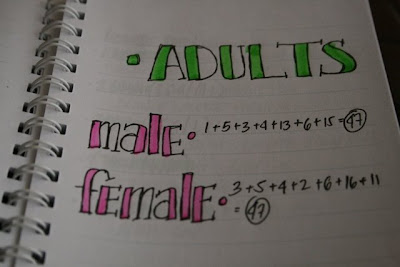 • ADULTS
male • 1+5+3+4+13+6+15=47
female • 3+5+4+2+6+16+11
= 47